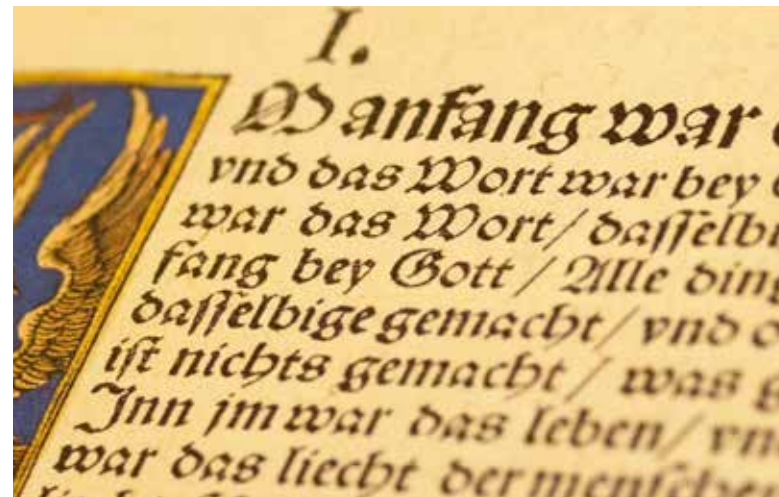 I.
M anfang war
vnd das Wort war bey
war das Wort / dasſelbi
fang bey Gott / Alle ding
dasſelbige gemacht / vnd o
iſt nichts gemacht / was g
Inn jm war das leben / vn
war das liecht der menſchen